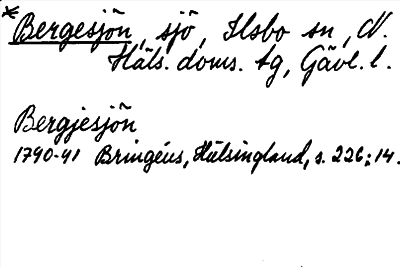 * Bergesjön, sjö, Ilsbo sn, N.
Häls. doms. tg, Gävl. l.
Bergjesjön
1790-91 Bringéus, Hälsingland, s. 226:14.